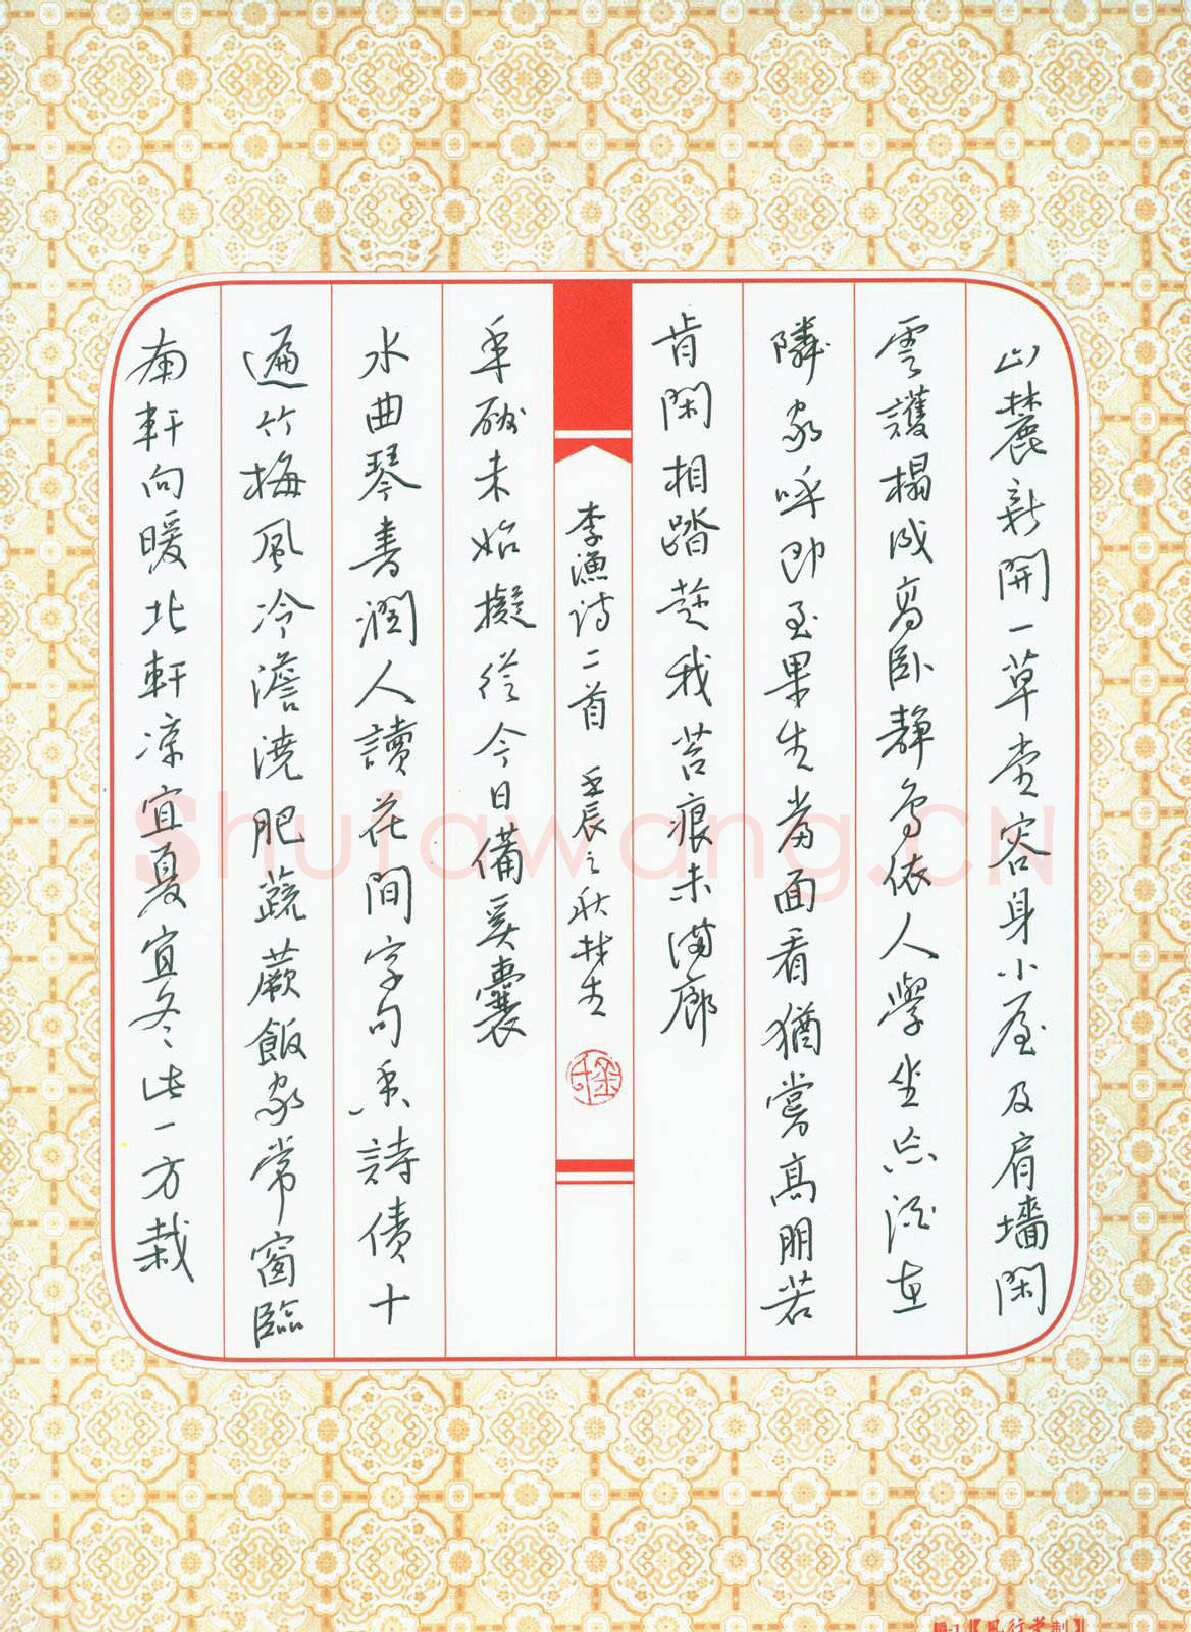 山麓新開一草堂容身小屋及肩墻閑
雲護榻成高卧靜鳥依人學坐忘酒在
隣家呼即至果生當面看猶嘗高朋若
肯閑相踏趁我苔痕未滿廊
南軒向暖北軒凉宜夏宜冬此一方栽
遍竹梅風冷澹澆肥蔬蕨飯家常窗臨
水曲琴書潤人讀花間字句香詩債十
年酬未始擬從今日備奚囊
李漁詩二首 壬辰之秋林生
Shufawang.CN